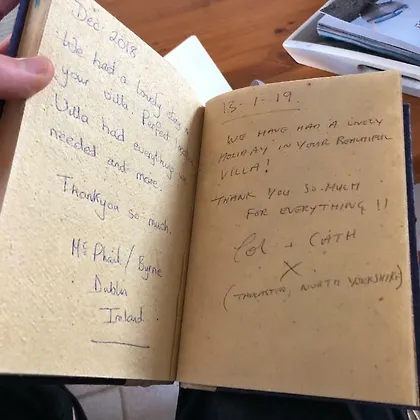 Dec 2018
We had a lovely stay in
your villa. Perfect
Villa had everything we
needed and more.
Thankyou so much.
McPhail / Byrne
Dublin
Ireland
13-1-19.
WE HAVE HAD A LOVELY
HOLIDAY IN YOUR BEAUTIFUL
VILLA!
THANK YOU SO MUCH
FOR EVERYTHING !!
Col + CATH
X
NORTH YORKSHIRE)